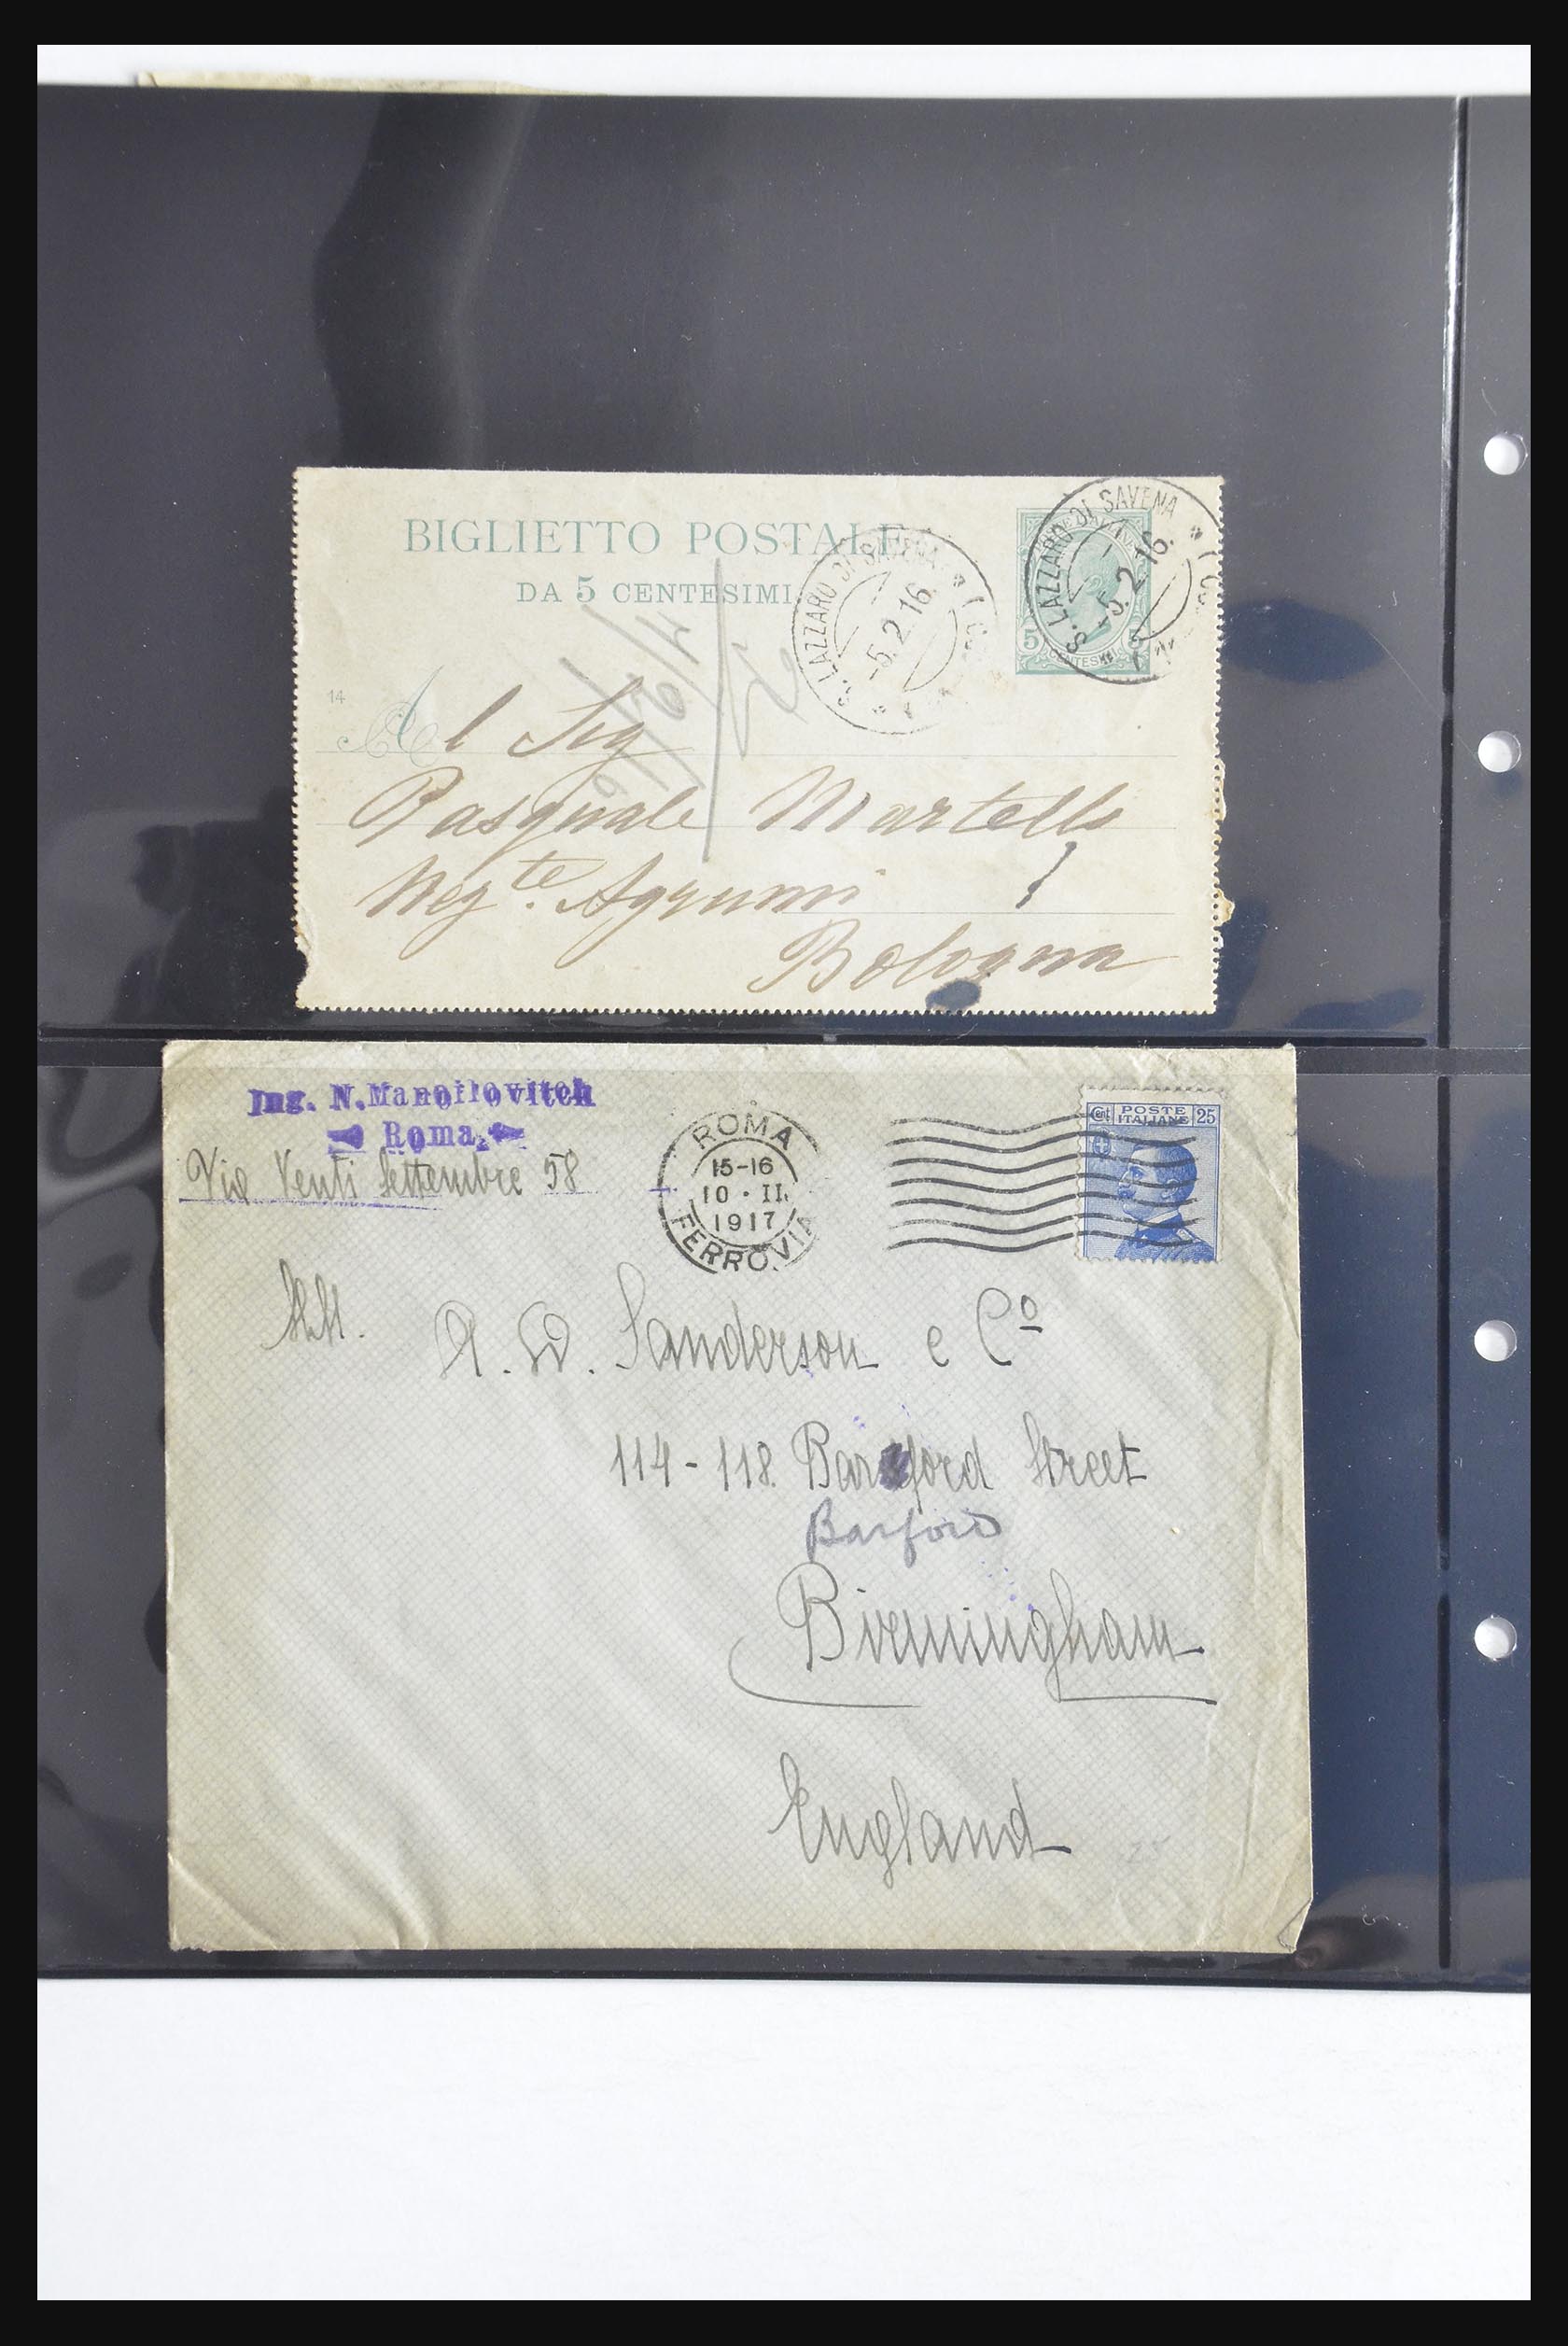 BIGLIETTO POSTALE
DA 5 CENTESIMI
S. LAZZARO DI SAVENA
-5.2.16
S. LAZZARO DI SAVENA
-5.2.16.
5
CENTESIMI
14
Al Sig
Pasquale Martelli
Negte. Agrumi
Bologna
Ing. N. Manoilovitch
Roma.
Via Venti Settembre 58
ROMA
15-16
10 · II.
1917
FERROVIA
Cent POSTE ITALIANE 25
A. W. Sanderson e Co
114-118 Barford Street
Barford
Birmingham
England